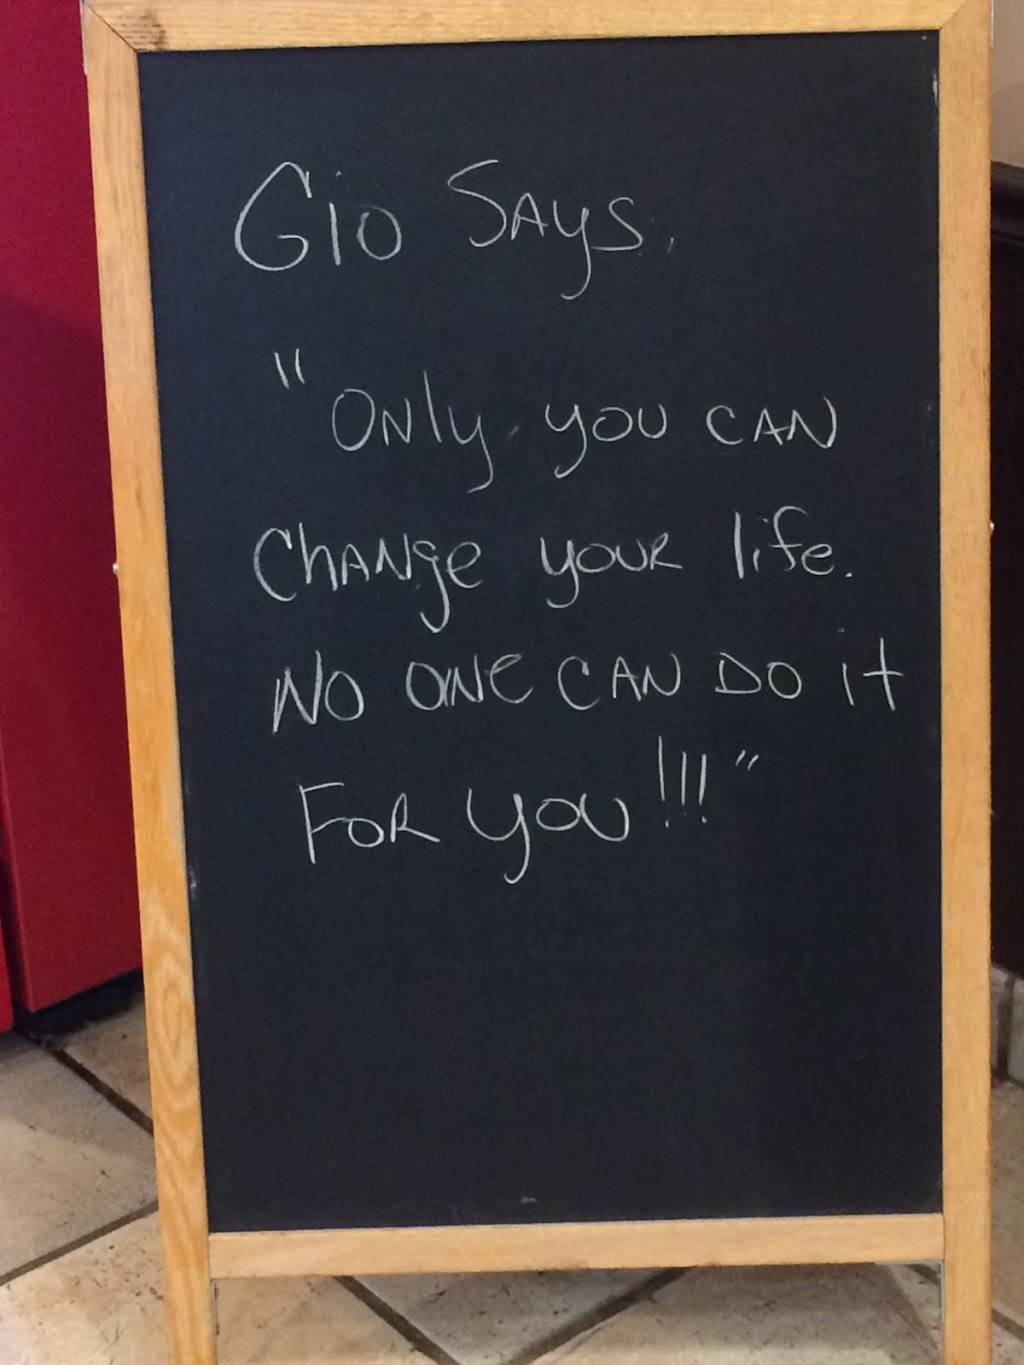 Gio SAyS,
"ONly you CAN
ChANge youR life.
NO ONe CAN DO it
FOR you!!!"